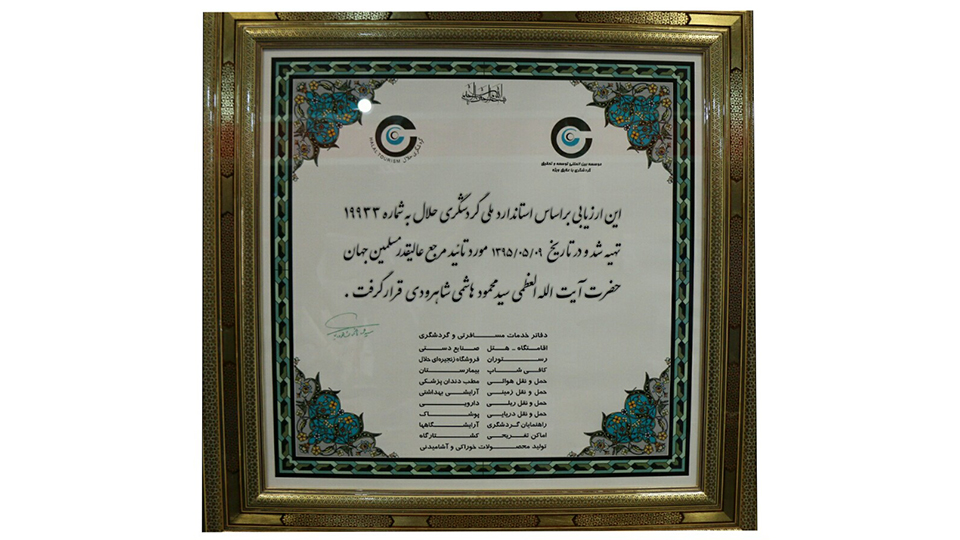 گردشگری حلال HALAL TOURISM
موسسه بین المللی توسعه و تحقیق
گردشگری با علایق ویژه
این ارزیابی براساس استاندارد ملی گردشگری حلال به شماره ۱۹۹۳۳
تهیه شد و در تاریخ ۱۳۹۵/۰۵/۰۹ مورد تائید مرجع عالیقدر مسلمین جهان
حضرت آیت الله العظمی سید محمود هاشمی شاهرودی قرار گرفت .
دفاتر خدمات مسافرتی و گردشگری
اقامتگاه - هتل صنایع دستی
رستوران فروشگاه زنجیره‌ای حلال
کافی شاپ بیمارستان
حمل و نقل هوائی مطب دندان پزشکی
حمل و نقل زمینی آرایشی بهداشتی
حمل و نقل ریلی دارویی
حمل و نقل دریایی پوشاک
راهنمایان گردشگری آرایشگاهها
اماکن تفریحی کشتارگاه
تولید محصولات خوراکی و آشامیدنی